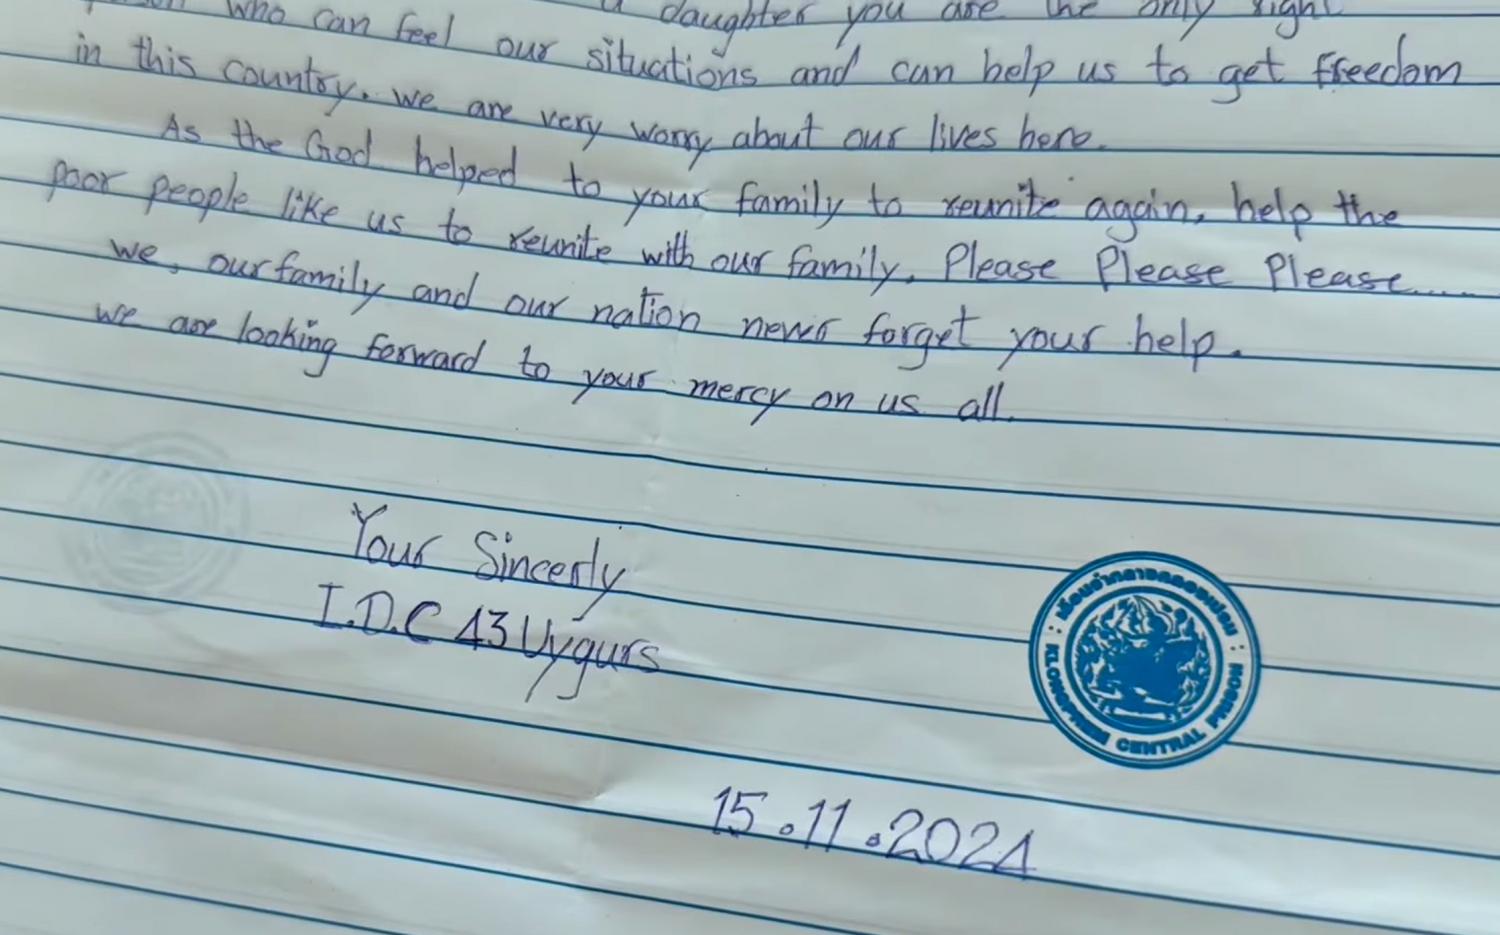 who can feel our situations and can help us to get freedom
daughter you are the only right
in this country. we are very worry about our lives here.
As the God helped to your family to reunite again, help the
poor people like us to reunite with our family. Please Please Please.....
we, our family and our nation never forget your help.
we are looking forward to your mercy on us all.
Your Sincerly
I.D.C 43 Uygurs
เรือนจำกลางคลองเปรม
KLONGPREM CENTRAL PRISON
15.11.2024